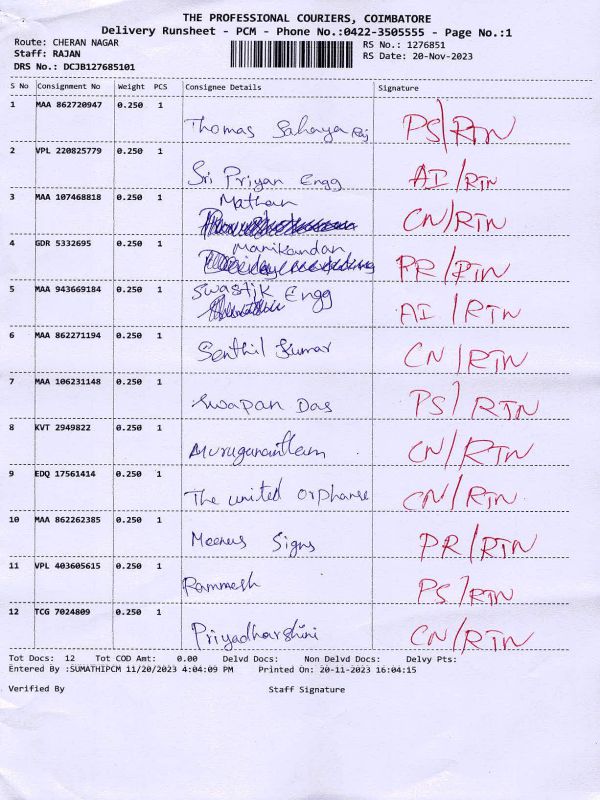 THE PROFESSIONAL COURIERS, COIMBATORE
Delivery Runsheet - PCM - Phone No.:0422-3505555 - Page No.:1
Route: CHERAN NAGAR RS No.: 1276851
Staff: RAJAN RS Date: 20-Nov-2023
DRS No.: DCJB127685101
S No Consignment No Weight PCS Consignee Details Signature
1 MAA 862720947 0.250 1
Thomas Sahaya Raj PS/RTN
2 VPL 220825779 0.250 1
Sri Priyan Engg AI/RTN
3 MAA 107468818 0.250 1 Mathan
CN/RTN
4 GDR 5332695 0.250 1 Manikandan
PR/RTN
5 MAA 943669184 0.250 1 Swastik Engg
AI/RTN
6 MAA 862271194 0.250 1
Senthil Kumar CN/RTN
7 MAA 106231148 0.250 1
Swapan Das PS/RTN
8 KVT 2949822 0.250 1
Muruganantham CN/RTN
9 EDQ 17561414 0.250 1
The united orphanse CN/RTN
10 MAA 862262385 0.250 1
Meenus Signs PR/RTN
11 VPL 403605615 0.250 1
Rammesh PS/RTN
12 TCG 7024809 0.250 1
Priyadharshini CN/RTN
Tot Docs: 12 Tot COD Amt: 0.00 Delvd Docs: Non Delvd Docs: Delvy Pts:
Entered By :SUMATHIPCM 11/20/2023 4:04:09 PM Printed On: 20-11-2023 16:04:15
Verified By Staff Signature